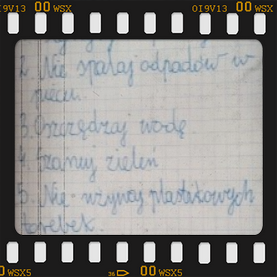 OI9V13 00 WSX OI9V13 00 WSX
2. Nie spalaj odpadów w
piecu.
3. Oszczędzaj wodę
4. Szanuj zieleń
5. Nie używaj plastikowych
torebek.
00 WSX5 36 00 WSX5